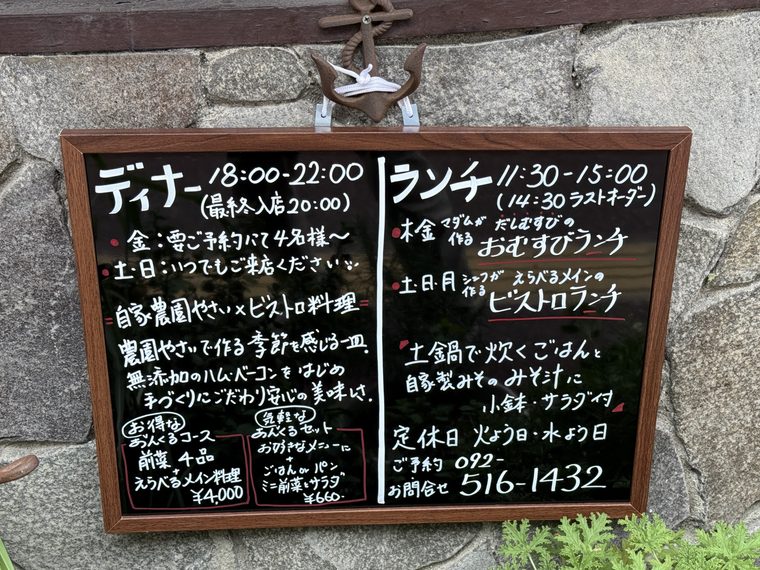 ディナー 18:00-22:00
(最終入店20:00)
・金:要ご予約にて4名様〜
・土・日:いつでもご来店ください
=自家農園やさい×ビストロ料理=
農園やさいで作る季節を感じる一皿.
無添加のハム・ベーコンをはじめ
手づくりにこだわり安心の美味しさ.
お得な
あんくるコース
前菜4品
+
えらべるメイン料理
¥4,000
気軽な
あんくるセット
お好きなメニューに
+
ごはんorパン
ミニ前菜・サラダ
¥660-
ランチ 11:30-15:00
(14:30ラストオーダー)
・木金 マダムが作る だしむすびの
おむすびランチ
・土・日・月 シェフが作る えらべるメインの
ビストロランチ
土鍋で炊くごはんと
自家製みそのみそ汁に
小鉢・サラダ付
定休日 火よう日・水よう日
ご予約 092-
お問合せ 516-1432